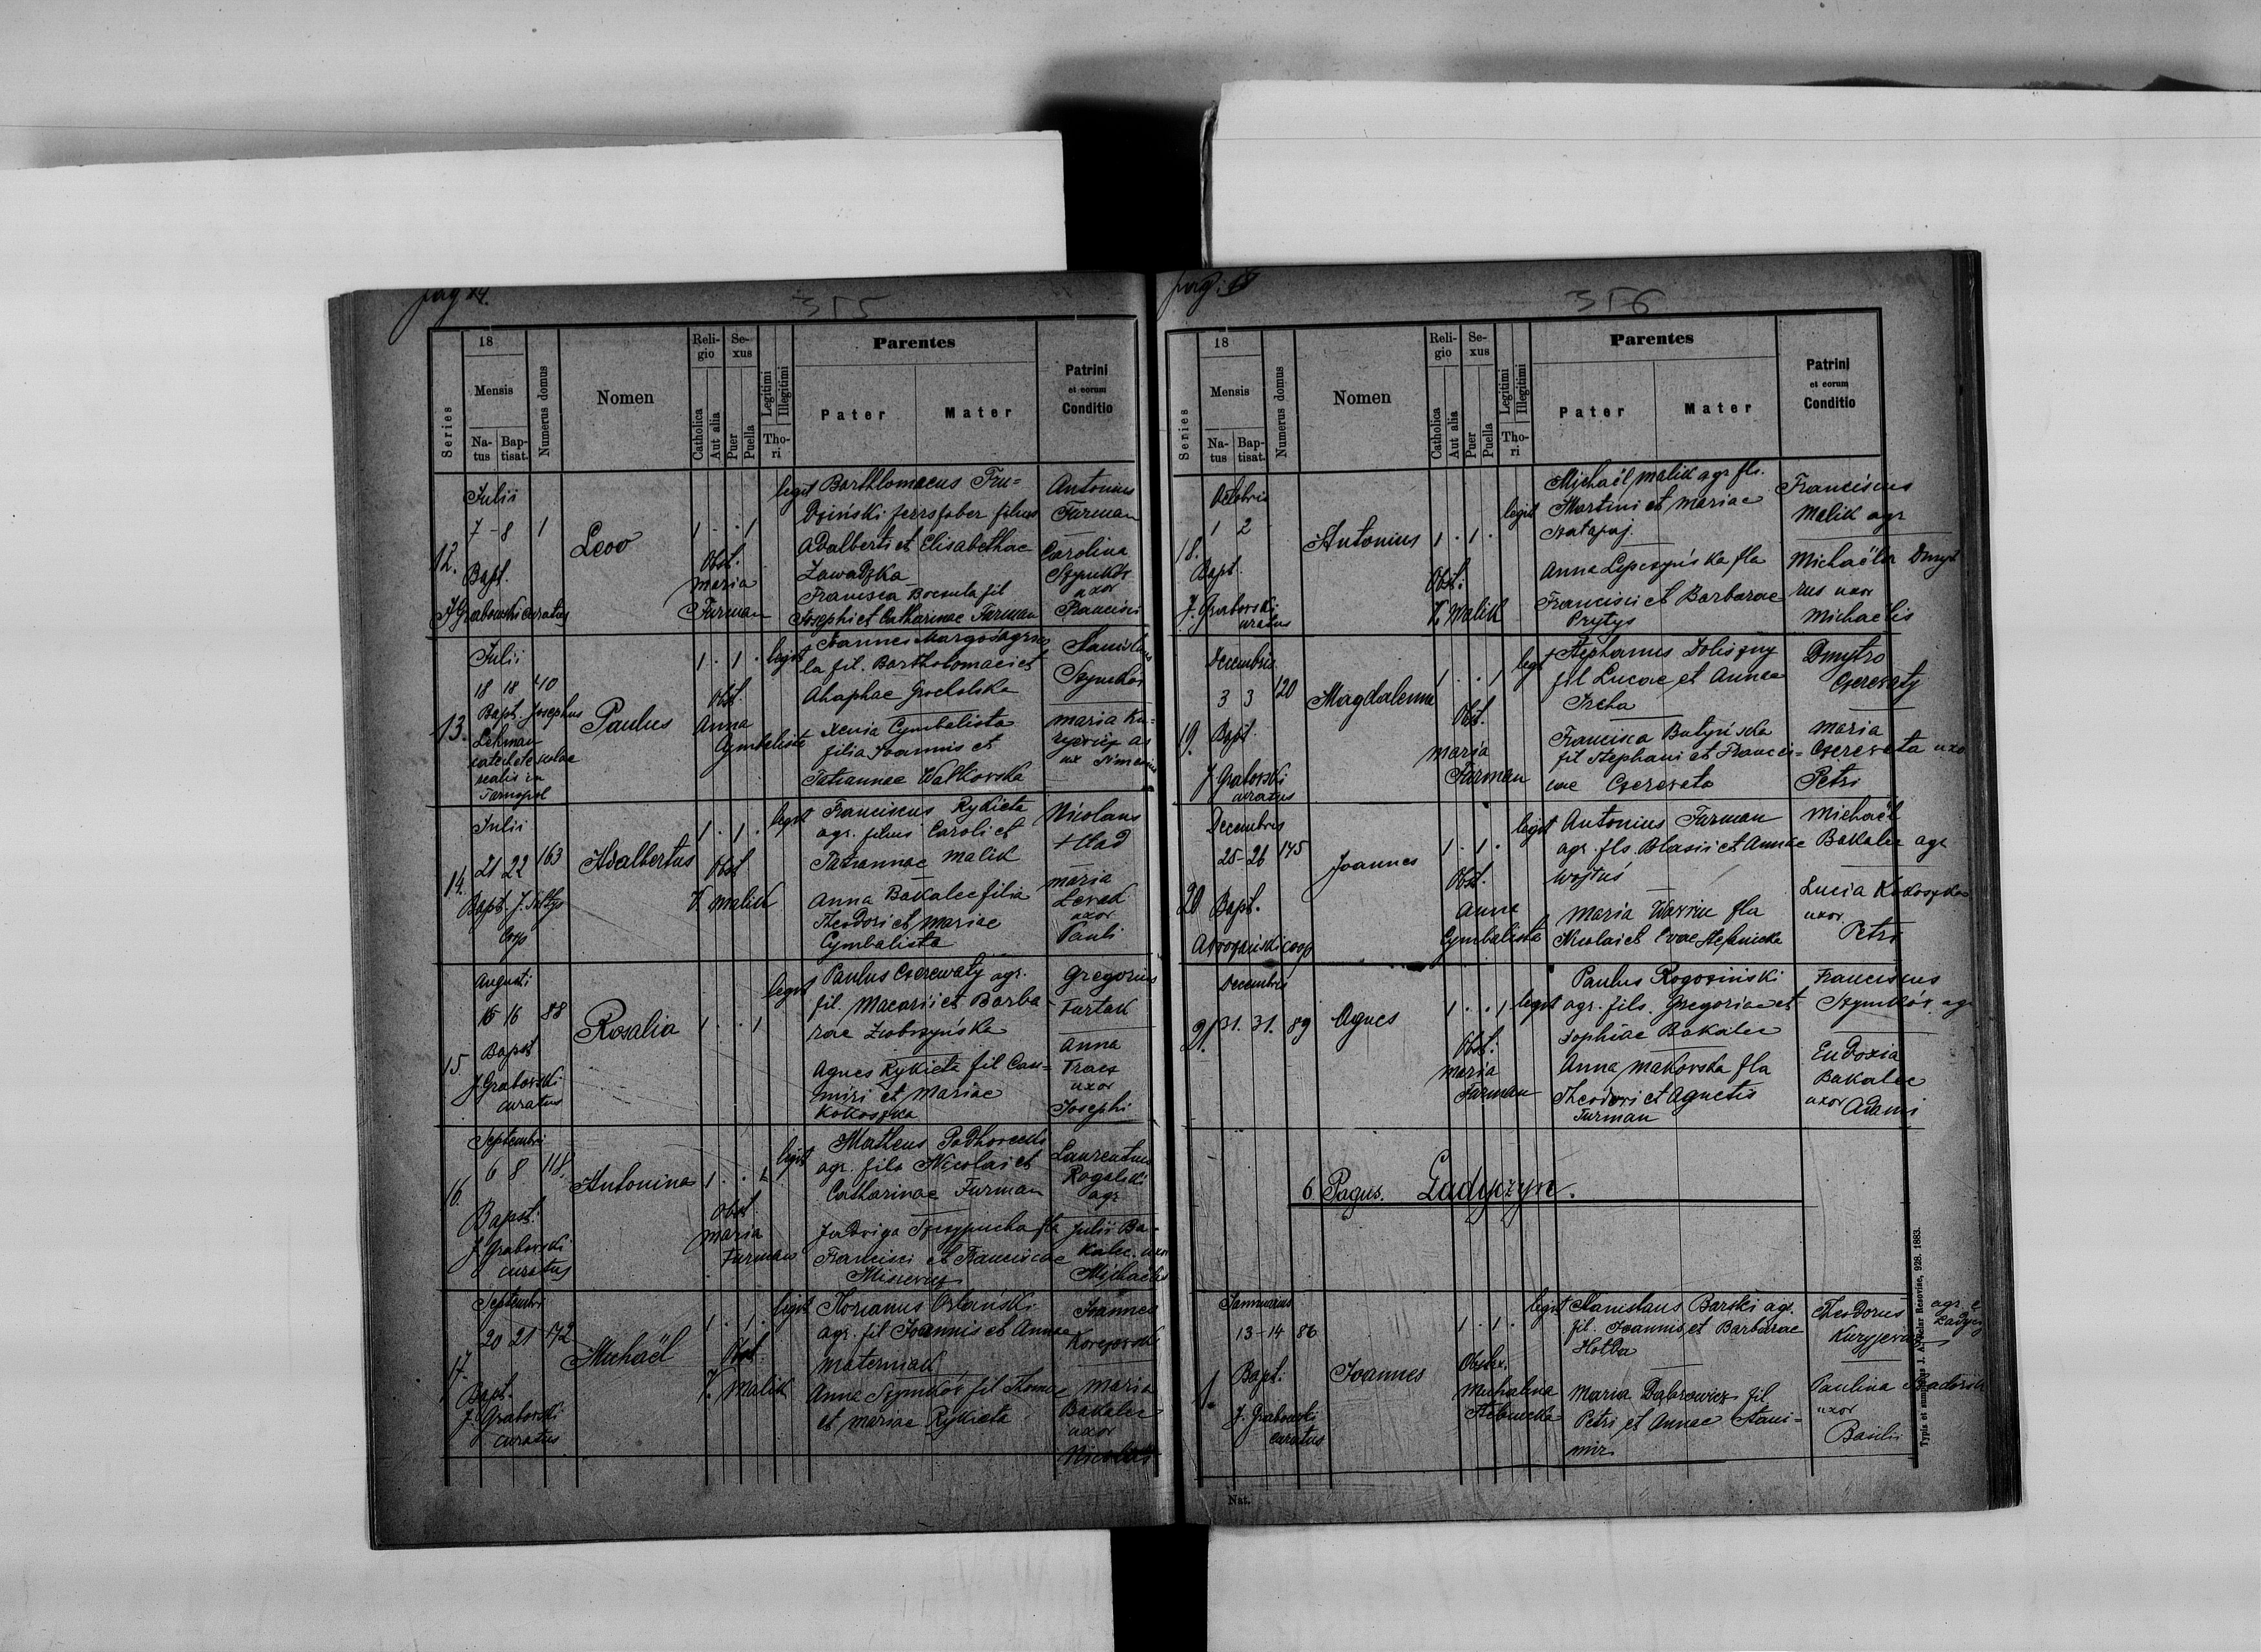 pag 14.
355
Series
18
Mensis
Na-
tus
Bap-
tisat.
Numerus domus
Nomen
Reli-
gio
Catholica
Aut alia
Se-
xus
Puer
Puella
Legitimi
Illegitimi
Tho-
ri
Parentes
Pater
Mater
Patrini
et eorum
Conditio
12.
Julii
7-8 1
Bapt.
J Grabowski curatus
Leoo
1 . . 1
Obst.
Maria
Furman
legit
Barthlomaeus Tru-
dziński ferrsfaber filius
Adalberti et Elisabethae
Zawadzka
Francisca Bocsula fil
Josephi et Catharinae Furman
Antonius
Furman
Carolina
Szymków
uxor
Francisci
13.
Julii
18 18 40
Bapt. Josephus
Lehman
catechete scolae
realis in
Tarnopol
Paulus
1 . 1 .
Obst.
Anna
Cymbalista
legit
Joannes Margoś agrico
la fil. Bartholomaei et
Ahaphae Grocholska
Xenia Cymbalista
filia Joannis et
Tatiannae Walkowska
Stanislaus
Szymków
Maria Ku-
14.
Julii
21 22 163
Bapt. J.
Coop
Adalbertus
1 . 1 .
Obst
V. Malik
legit
Franciscus Rykieta
agr. filius Caroli et
Tatiannae Malik
Anna Bakalec filia
Theodori et Mariae
Cymbalista
Nicolaus
Maria
uxor
Pauli
15
Augusti
15 16 88
Bapt
J. Grabowski
curatus
Rosalia
1 . . 1
legit
Paulus Czerewaty agr.
fil. Macarii et Barba
rae Ziobrzyńska
Agnes Rykieta fil Casi-
miri et Mariae
Kokoszka
Gregorius
Furtak
Anna
Tracz
uxor
Josephi
16.
Septembri
6 8 118
Bapt.
J Grabowski
curatus
Antonina
1 . . 1
Obst.
Maria
Furman
legit
Matheus Podhorecki
agr. fils Nicolai et
Catharinae Furman
Jadwiga Szczypucha fla
Francisci et Franciscae
Misiewicz
Laurentius
Rogalski
agr
Julii Ba-
kalec uxor
Michaelis
17.
Septembri
20 21 172
Bapt.
J. Grabowski
curatus
Michaël
1 . 1 .
Obst.
V. Malik
legit
Florianus Orlański
agr. fil Joannis et Annae
Materniak
Anna Szymków fil Thomae
et Mariae Rykieta
Joannes
Maria
Bakalec
uxor
Nicolai
pag: 15
356
Series
18
Mensis
Na-
tus
Bap-
tisat.
Numerus domus
Nomen
Reli-
gio
Catholica
Aut alia
Se-
xus
Puer
Puella
Legitimi
Illegitimi
Tho-
ri
Parentes
Pater
Mater
Patrini
et eorum
Conditio
18.
Octobris
1 2
Bapt.
J. Grabowski
curatus
Antonius
1 . 1 .
Obst:
V. Malik
legit
Michaël Malik agr fls.
Martini et Mariae
Szatapaj.
Anna Lepczyńska fla
Francisci et Barbarae
Prytys
Franciscus
Malik agr
Michaëla Dmyt
rus uxor
Michaelis
19.
Decembris
3 3 120
Bapt.
J Grabowski
curatus
Magdalenna
1 . . 1
Obst.
Maria
Furman
legit
Stephanus Doliszny
fil Lucae et Annae
Francisca Butyńska
fil Stephani et Francis-
cae Czerewata
Dmytro
Czerewaty
Maria
Czerewata uxo
Petri
20
Decembris
25-26 145
Bapt.
coop
Joannes
1 . 1 .
Obst.
Anna
Cymbalista
legit
Antonius Furman
agr. fls. Blasii et Annae
Wojtuś
Maria fla
Nicolai et Evae Stefanicka
Michaël
Bakalec agr
Lucia Kokoszka
uxor
Petri
21.
Decembris
31. 31. 89
Agnes
1 . . 1
Obst.
Maria
Furman
legit
Paulus Rogoziński
agr. fils. Gregoriae et
Sophiae Bakalec
Anna Makowska fla
Theodori et Agnetis
Furman
Franciscus
Szymków. agr
Eudoxia
Bakalec
uxor Adami
6. Pagus. Ladyczyn.
1.
Januarius
13-14 86
Bapt.
J. Grabowski
curatus
Joannes
1 . 1 .
Obstex.
Michalina
Stebnicka
legit
Stanislaus Barski agr.
fil. Joannis et Barbarae
Hotba
Maria Dąbrowicz fil
Petri et Annae Stani-
mir
Theodorus
agr. e
Ladycz
Paulina
uxor
Basilii
Nat.
Typis et sumptibus J. A. Pelar Resoviae, 928. 1883.